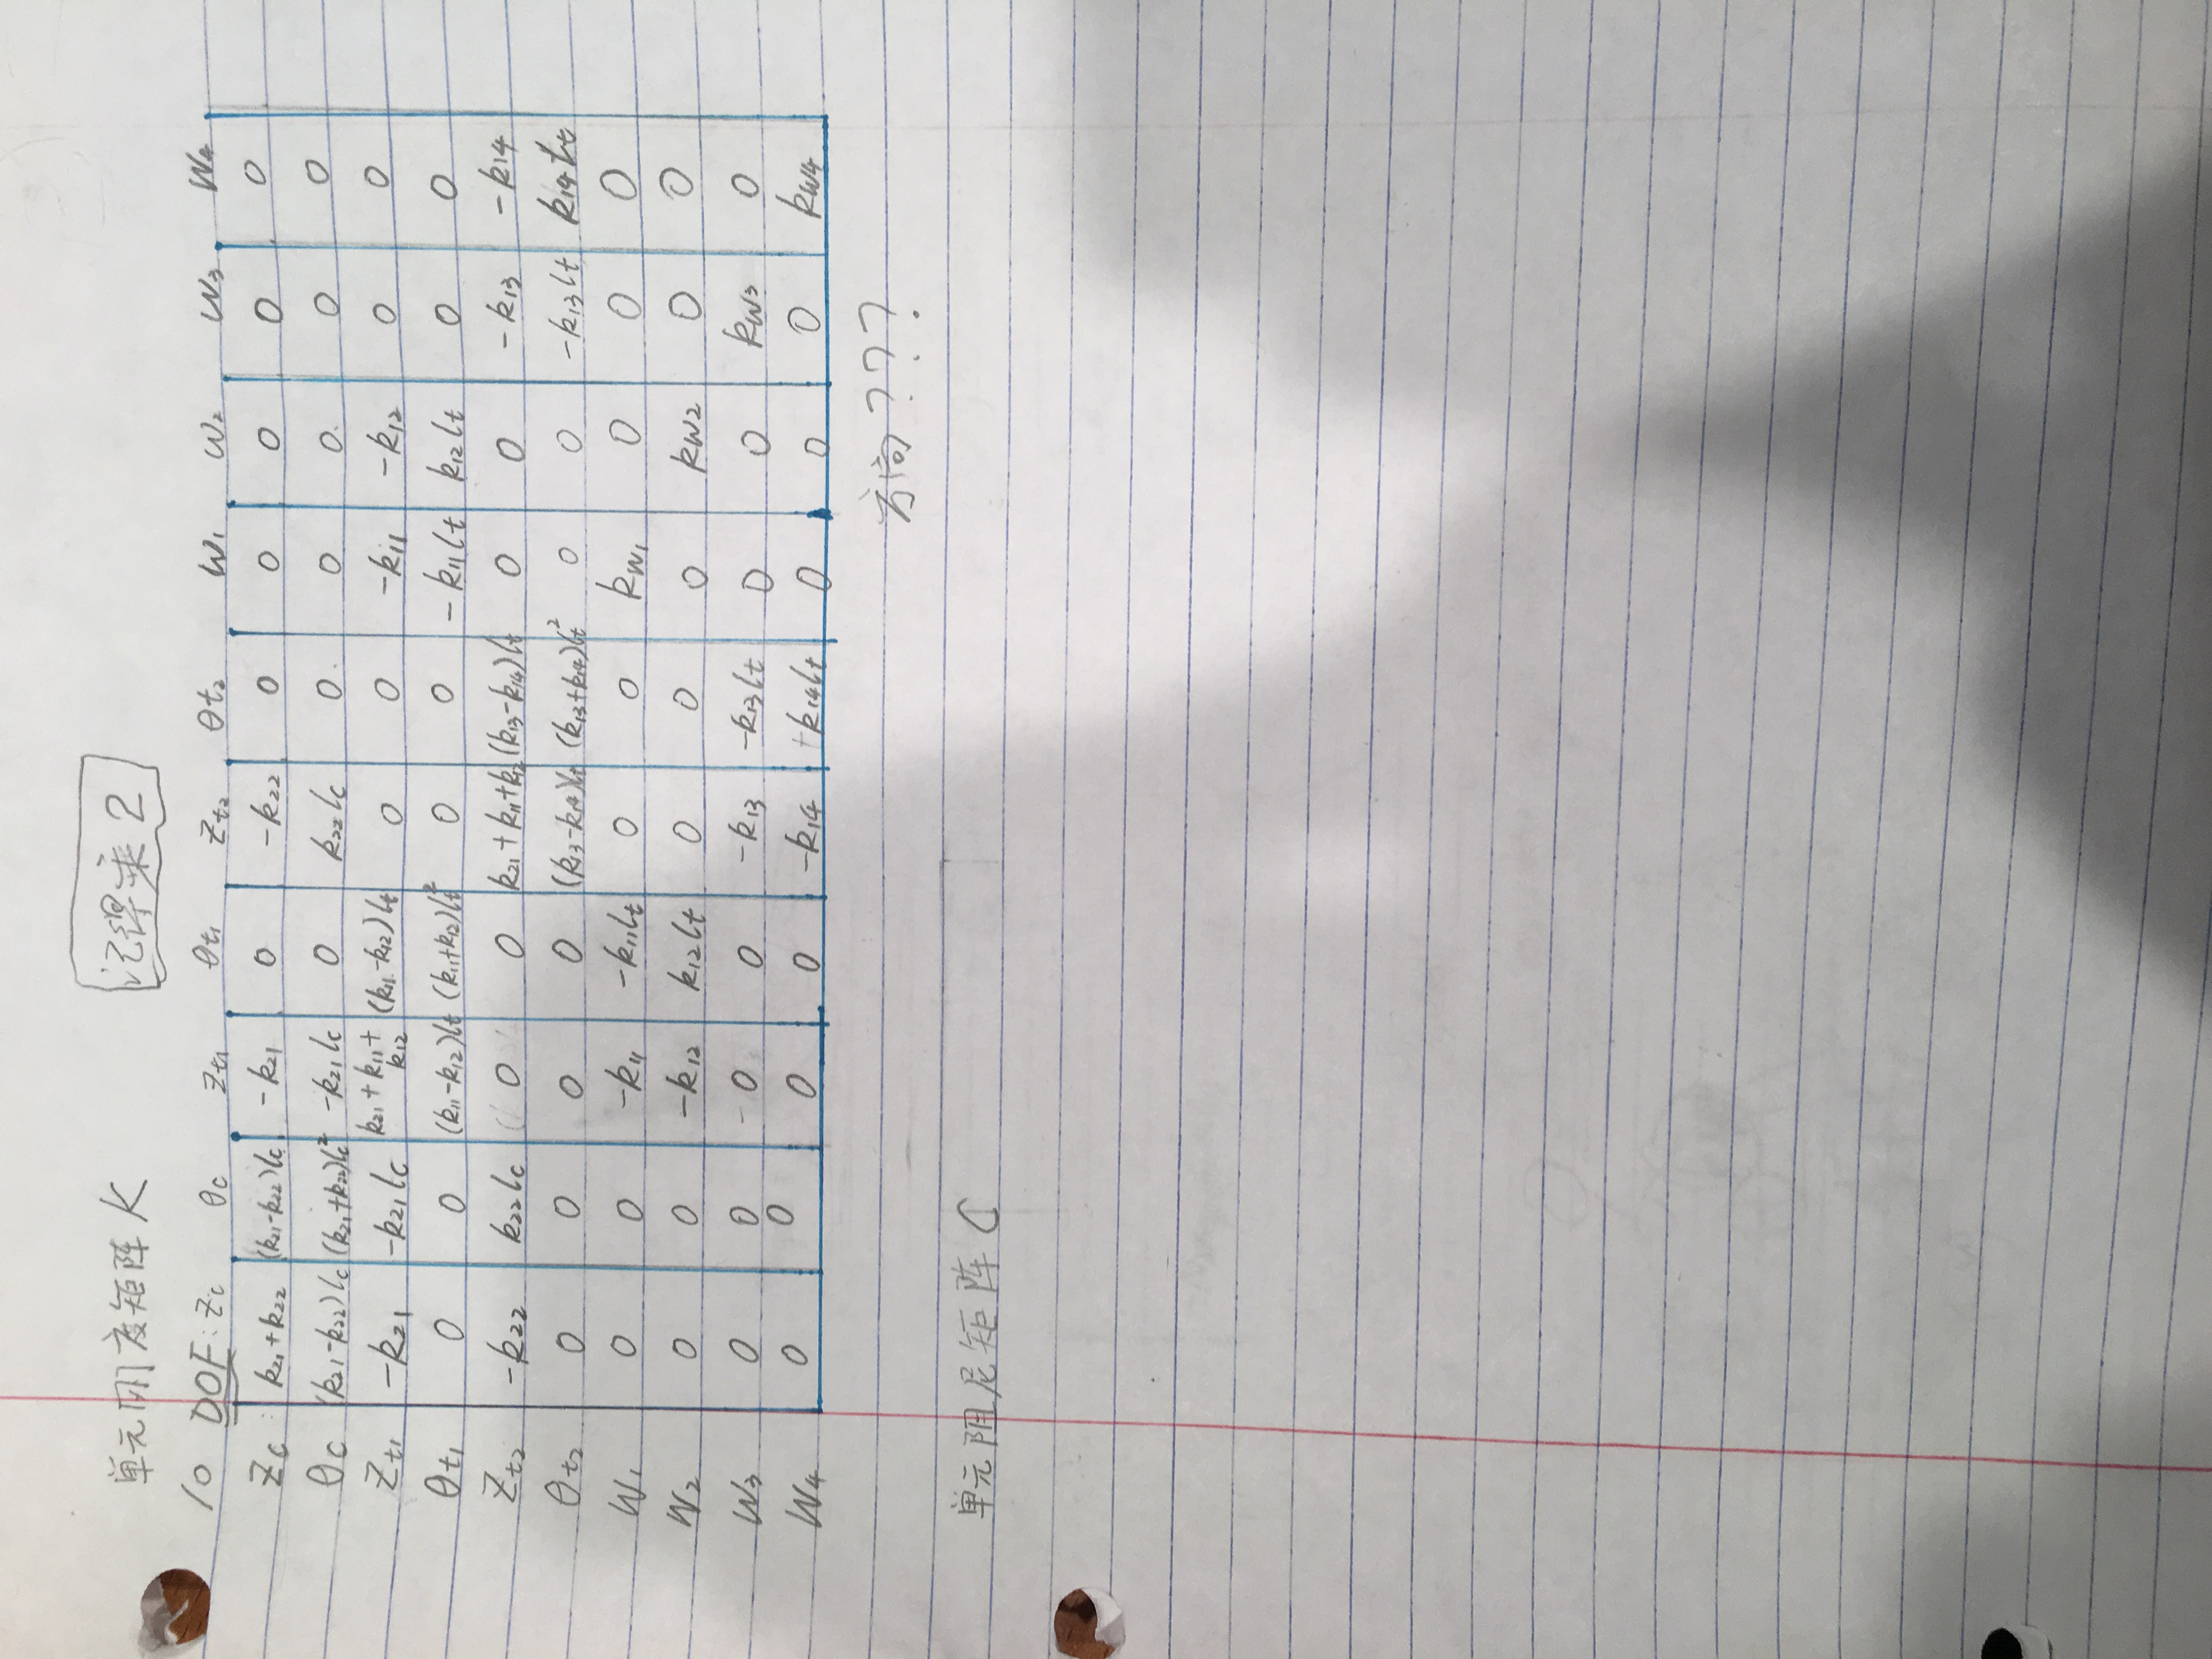 单元刚度矩阵 K 记得乘2
10 DOF: Zc θc Zt₁ θt₁ Zt₂ θt₂ W₁ W₂ W₃ W₄
Zc: k₂₁+k₂₂ (k₂₁-k₂₂)lc -k₂₁ 0 -k₂₂ 0 0 0 0 0
θc (k₂₁-k₂₂)lc (k₂₁+k₂₂)lc² -k₂₁lc 0 k₂₂lc 0 0 0 0 0
Zt₁ -k₂₁ -k₂₁lc k₂₁+k₁₁+k₁₂ (k₁₁-k₁₂)lt 0 0 -k₁₁ -k₁₂ 0 0
θt₁ 0 0 (k₁₁-k₁₂)lt (k₁₁+k₁₂)lt² 0 0 -k₁₁lt k₁₂lt 0 0
Zt₂ -k₂₂ k₂₂lc 0 0 k₂₁+k₁₁+k₁₂ (k₁₃-k₁₄)lt 0 0 -k₁₃ -k₁₄
θt₂ 0 0 0 0 (k₁₃-k₁₄)lt (k₁₃+k₁₄)lt² 0 0 -k₁₃lt k₁₄lt
W₁ 0 0 -k₁₁ -k₁₁lt 0 0 kw₁ 0 0 0
W₂ 0 0 -k₁₂ k₁₂lt 0 0 0 kw₂ 0 0
W₃ 0 0 0 0 -k₁₃ -k₁₃lt 0 0 kw₃ 0
W₄ 0 0 0 0 -k₁₄ +k₁₄lt 0 0 0 kw₄
方向???
单元阻尼矩阵 C